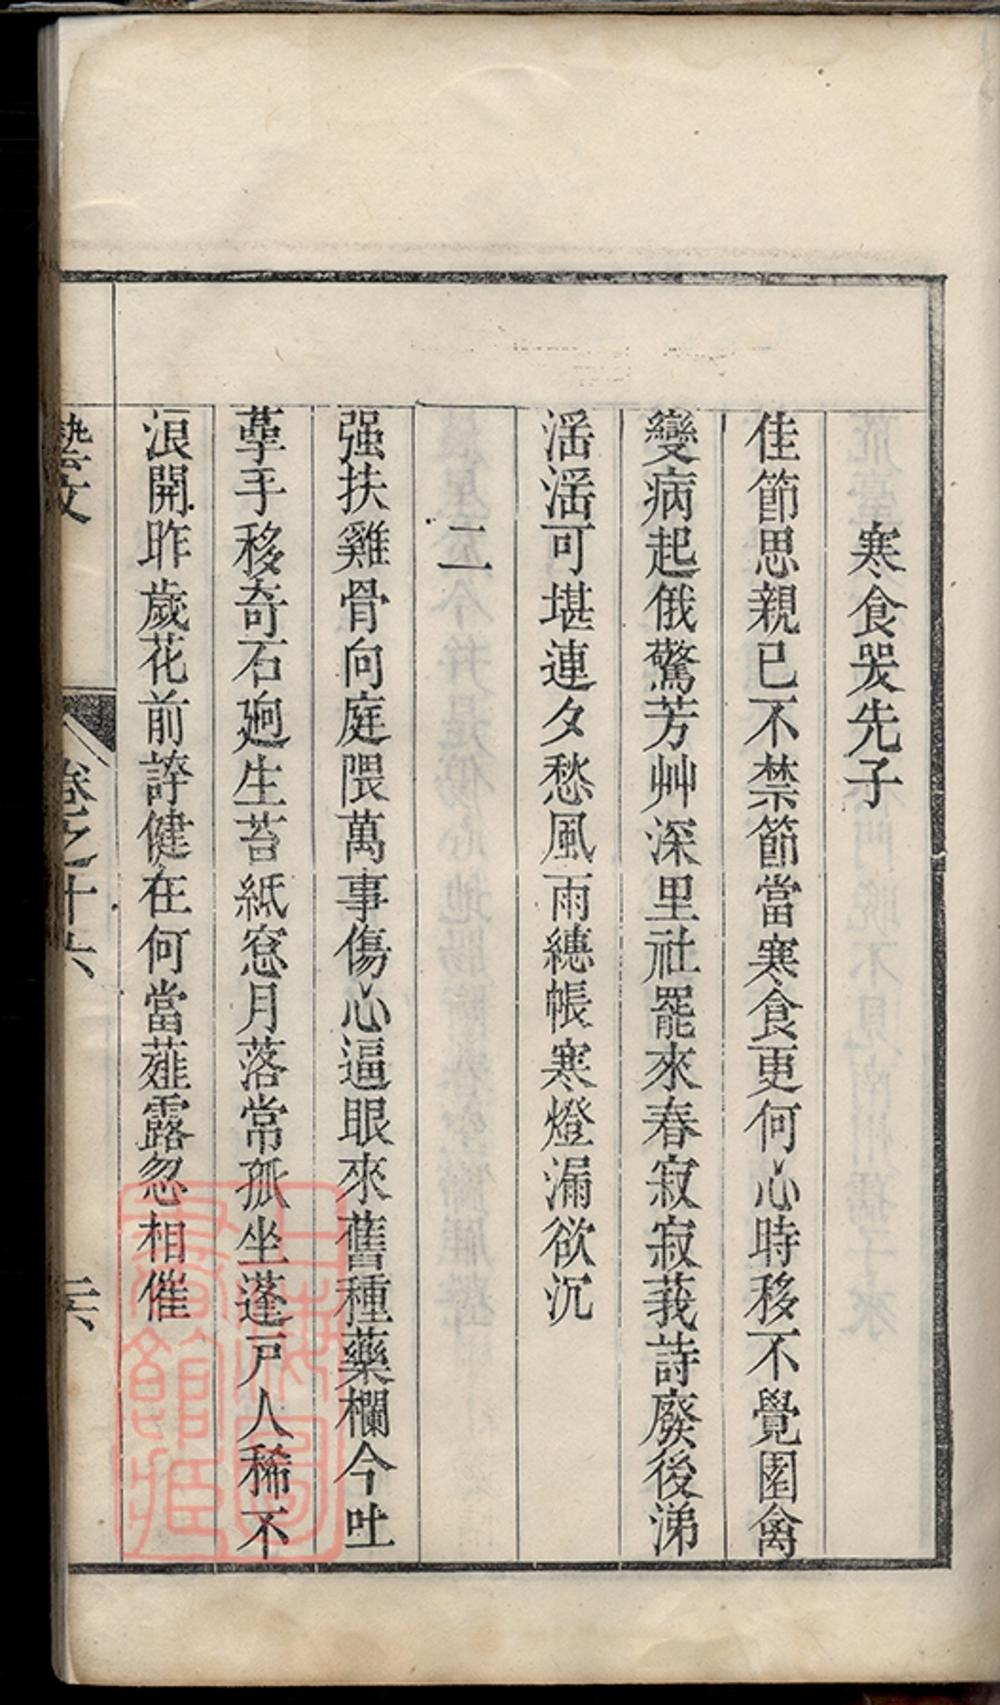 寒食哭先子
佳節思親已不禁節當寒食更何心時移不覺園禽
變病起俄驚芳艸深里社罷來春寂寂莪詩廢後涕
滛滛可堪連夕愁風雨繐帳寒燈漏欲沉
二
强扶雞骨向庭隈萬事傷心逼眼來舊種藥欄今吐
蕚手移奇石廻生苔紙窓月落常孤坐蓬戸人稀不
浪開昨歲花前誇健在何當薤露忽相催
藝文
卷之十六
二六
上海圖
書館藏